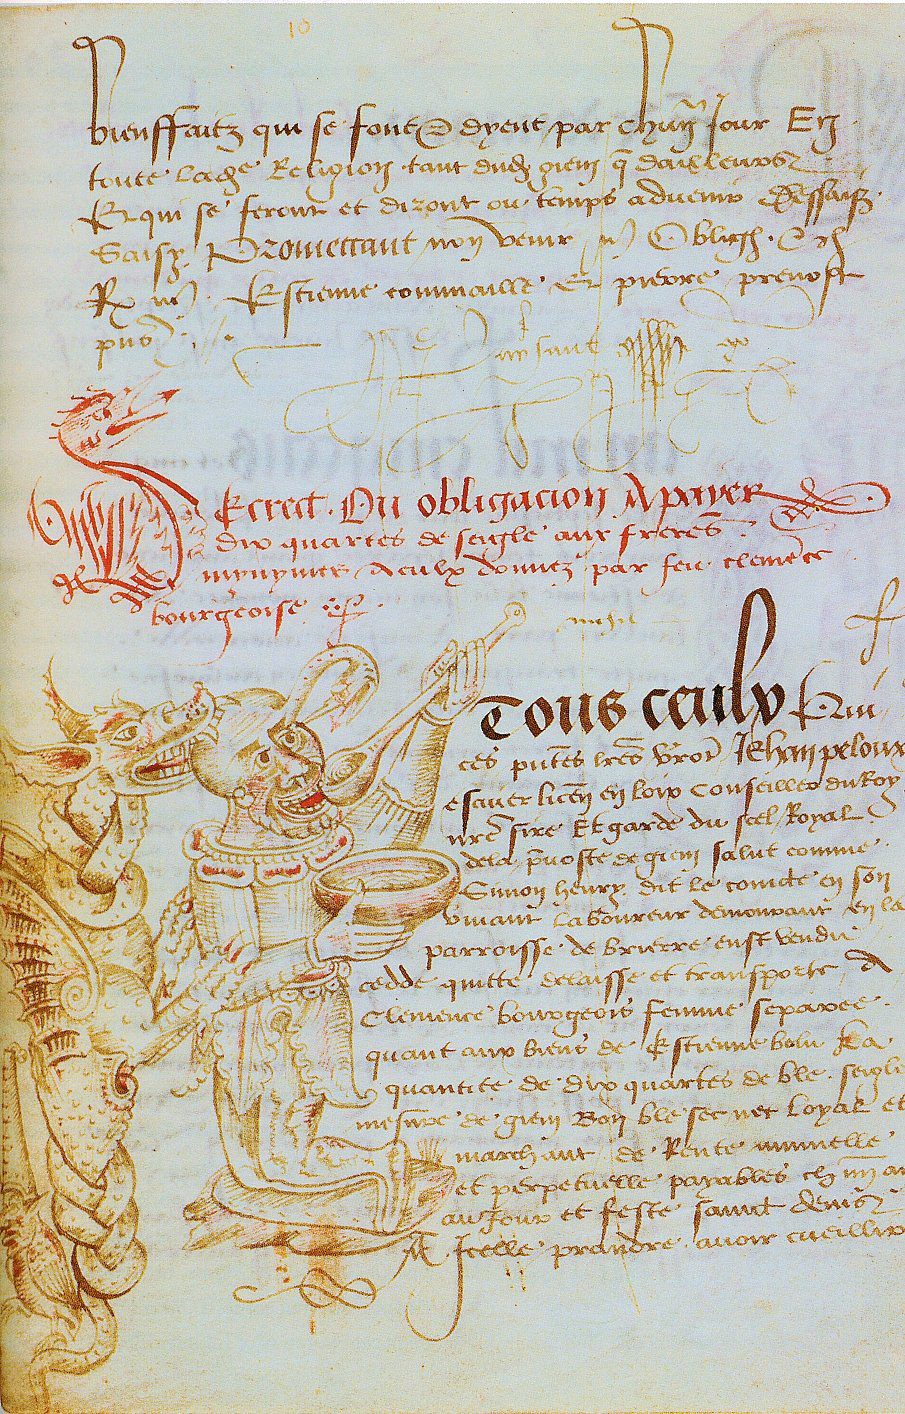 10
bienffaitz qui se font & dyent par chũn Jour En
toute lad religion tant dud gien q̃ dailleurs
Et qui se feront et diront ou temps advenir
Promectant non venir Obligh
Estienne commaille Et pierre prevost
pñs
Decrect Du obligacion A paier
dix quartes de seigle aux freres
mynymes A eulx donnez par feu clemẽce
bourgeoise
Tous ceulx Qui
ces pñtes lrẽs verroñ Jehan peloux
escuier licen en loix Conseiller du Roy
nrẽ sire Et garde du scel Royal
dela p̃voste de gien salut comme
Simon henry dit le comte en son
vivant laboureur demourant en la
parroisse de brierre eust vendu
cedde quitte delaisse et transporte A
Clemence bourgeois femme separee
quant aux biens de Estienne bolu La
quantite de dix quartes de ble seigle
mesure de gien Bon ble sec net loyal et
marchant de Rente annuelle
et perpetuelle payables chũn an
au Jour et feste sainct denis
A Icelle prandre avoir cueillir